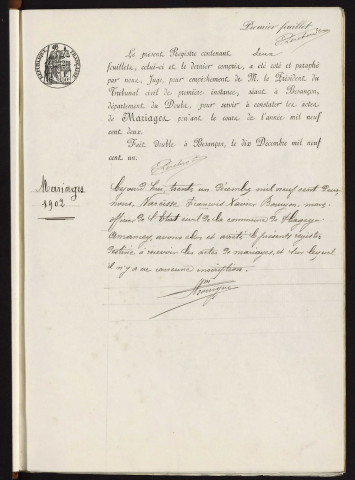 Premier feuillet
Le présent Registre contenant deux
feuillets, celui-ci et le dernier compris, a été coté et paraphé
par nous, Juge, pour empêchement de M. le Président du
Tribunal civil de première instance, séant à Besançon,
département du Doubs, pour servir à constater les actes
de Mariages pendant le cours de l'année mil neuf
cent deux.
Fait double à Besançon, le dix Décembre mil neuf
cent un.
Mariages
1902
Cejourd'hui, trente un décembre mil neuf cent deux
nous, Narcisse François Xavier Bourgon, maire
officier de l'Etat civil de la commune de Flagey
avons clos et arrêté le présent registre
destiné à recevoir les actes de mariages, et sur lequel
il n'y a eu aucune inscription.